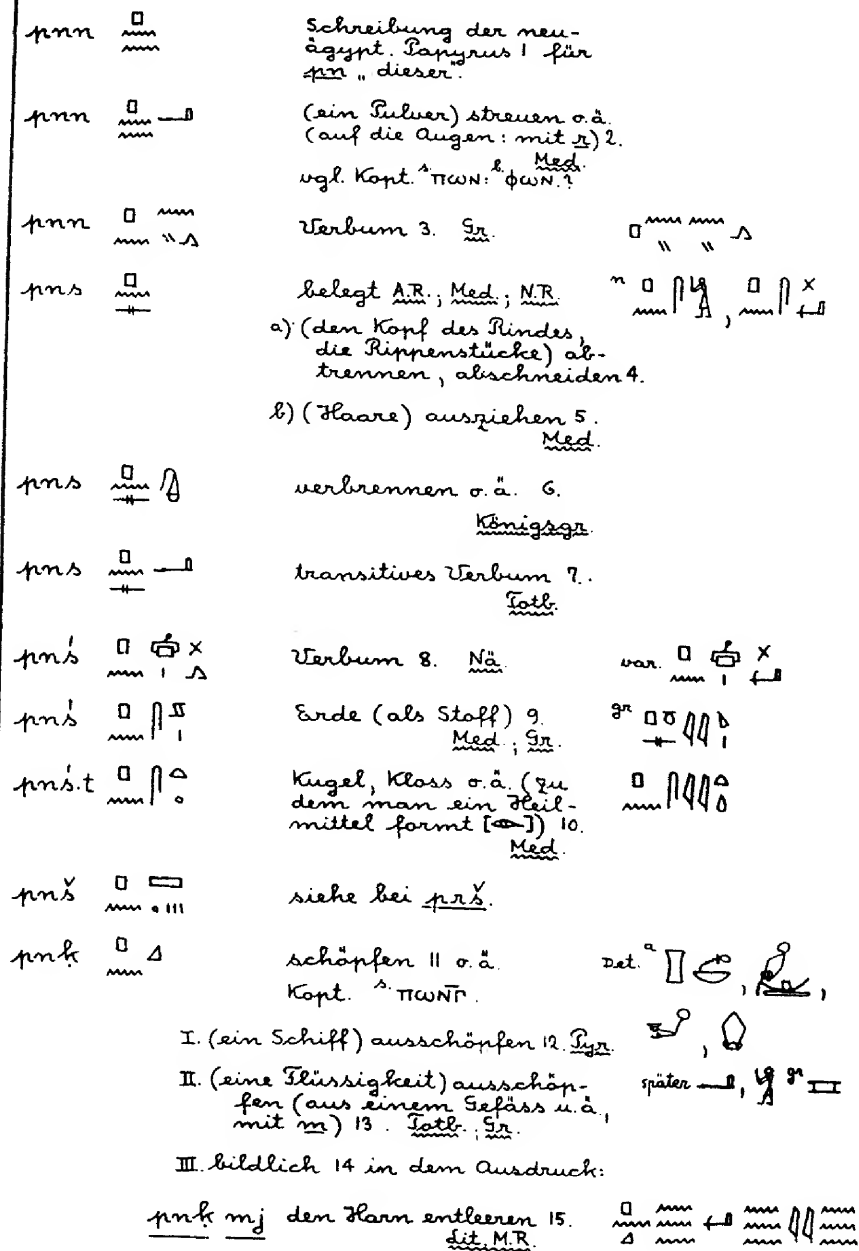 pnn Schreibung der neu-
ägypt. Papyrus 1 für
pn „dieser“.
pnn (ein Pulver) streuen o.ä.
(auf die Augen: mit r) 2.
Med.
vgl. Kopt. s. ⲡⲱⲛ: b. ⲫⲱⲛ.?
pnn Verbum 3. Gr.
pns belegt A.R.; Med.; N.R. n
a) (den Kopf des Rindes,
die Rippenstücke) ab-
trennen, abschneiden 4.
b) (Haare) ausziehen 5.
Med.
pns verbrennen o.ä. 6.
Königsgr.
pns transitives Verbum 7.
Totb.
pnś Verbum 8. Nä. var.
pnś Erde (als Stoff) 9. gr
Med.; Gr.
pnś.t Kugel, Kloss o.ä. (zu
dem man ein Heil-
mittel formt [𓁹]) 10.
Med.
pnš siehe bei prš.
pnḳ schöpfen 11 o.ä. Det. a
Kopt. s. ⲡⲱⲛⲅ̄.
I. (ein Schiff) ausschöpfen 12. Pyr.
II. (eine Flüssigkeit) ausschöp- später gr
fen (aus einem Gefäss u.ä.,
mit m) 13. Totb.; Gr.
III. bildlich 14 in dem Ausdruck:
pnḳ mj den Harn entleeren 15.
Lit. M.R.